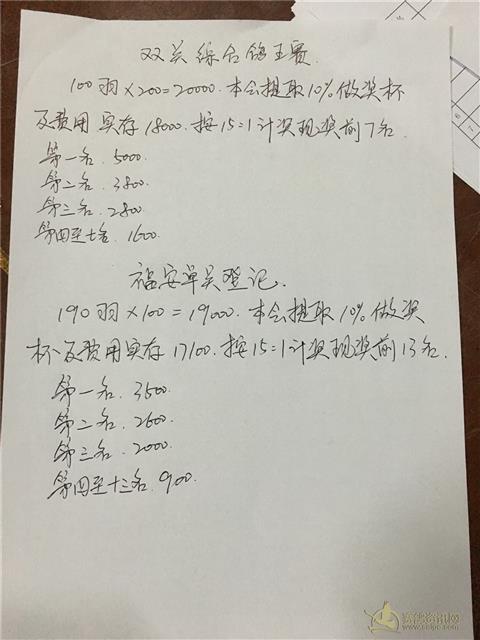 双关综合鸽王赛.
100羽×200=20000.本会提取10%做奖杯
及费用 实存18000.按15=1计奖现奖前7名
第一名.5000.
第二名.3800.
第三名.2800.
第四至七名.1600.
福安单关登记.
190羽×100=19000.本会提取10%做奖
杯及费用实存17100.按15=1计奖现奖前13名.
第一名.3500.
第二名.2600.
第三名.2000.
第四至十三名.900.